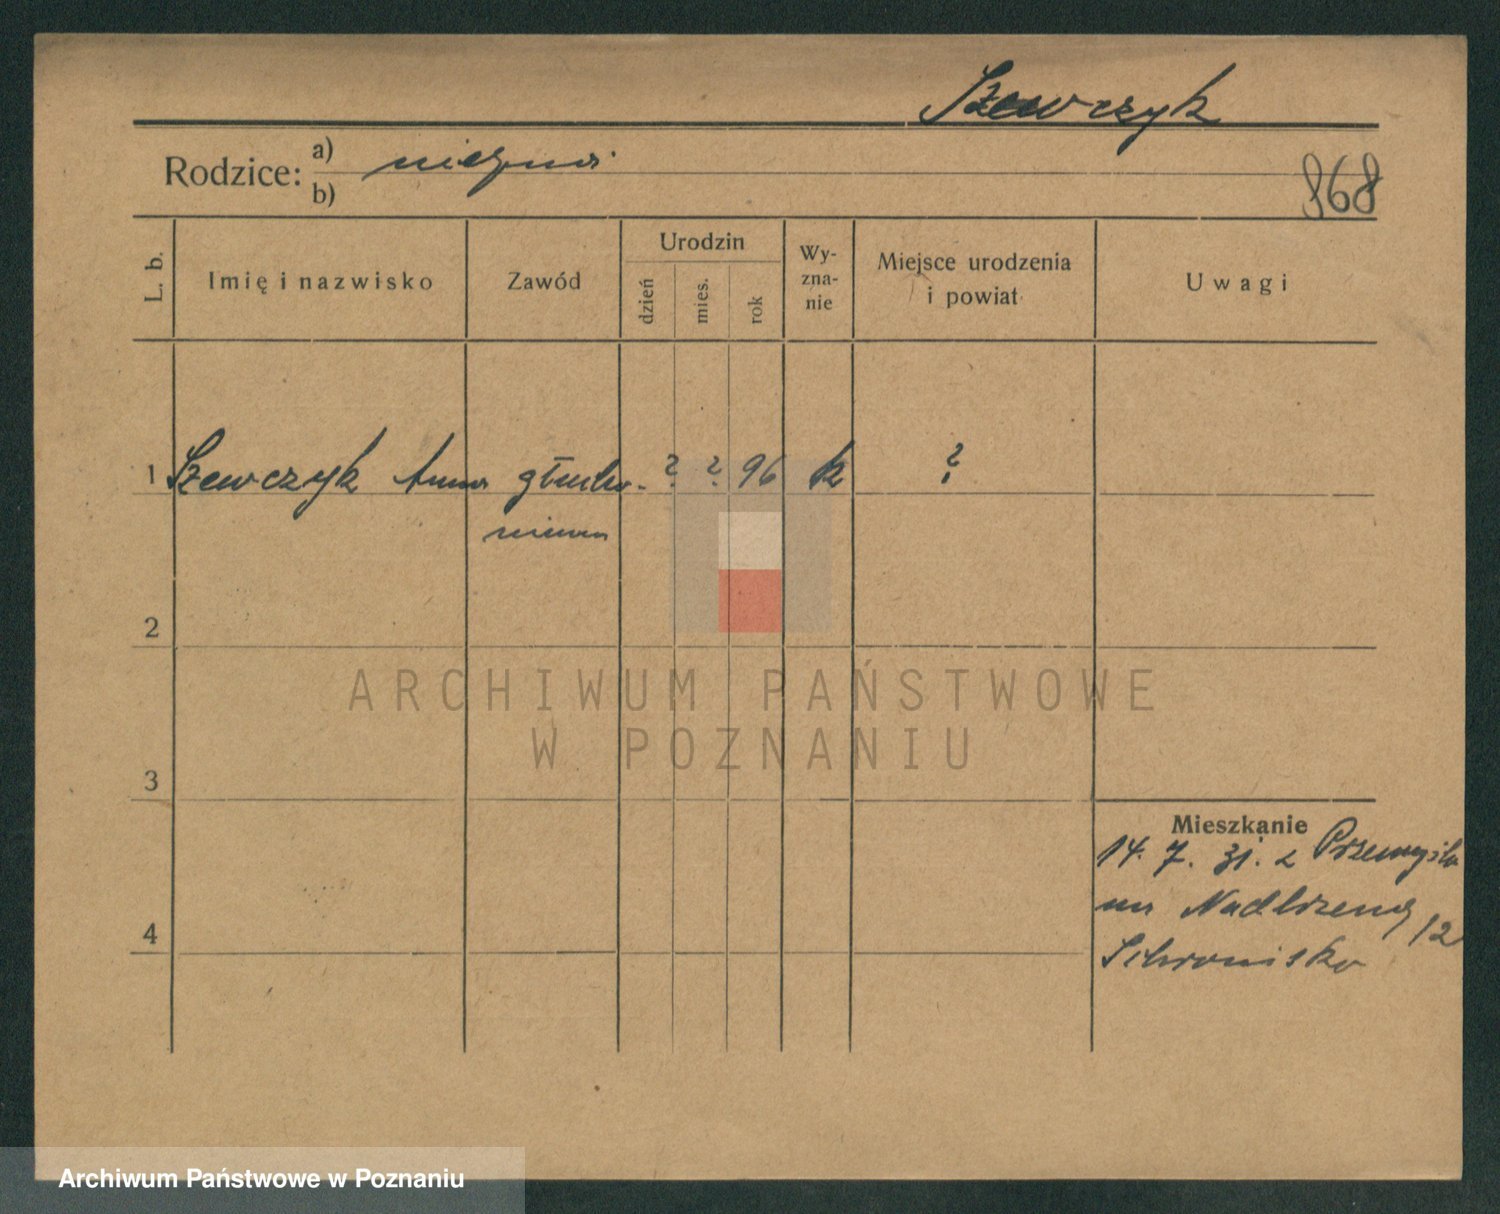 Szewczyk
Rodzice: a) nieznani
b)
868
L. b.
Imię i nazwisko
Zawód
Urodzin
dzień
mies.
rok
Wy-
zna-
nie
Miejsce urodzenia
i powiat
Uwagi
1 Szewczyk Anna głucho- ? ? 96 k ?
niema
2
ARCHIWUM PAŃSTWOWE
W POZNANIU
3
Mieszkanie
14. 7. 31. z Przemyśla
na Nadbrzeną 12
Schronisko
4
Archiwum Państwowe w Poznaniu